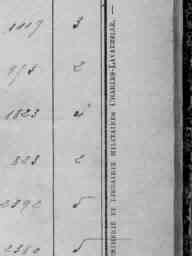 1119 3
2
1823
823 2
2392 5
2380 5
IMPRIMERIE ET LIBRAIRIE MILITAIRES CHARLES-LAVAUZELLE. —